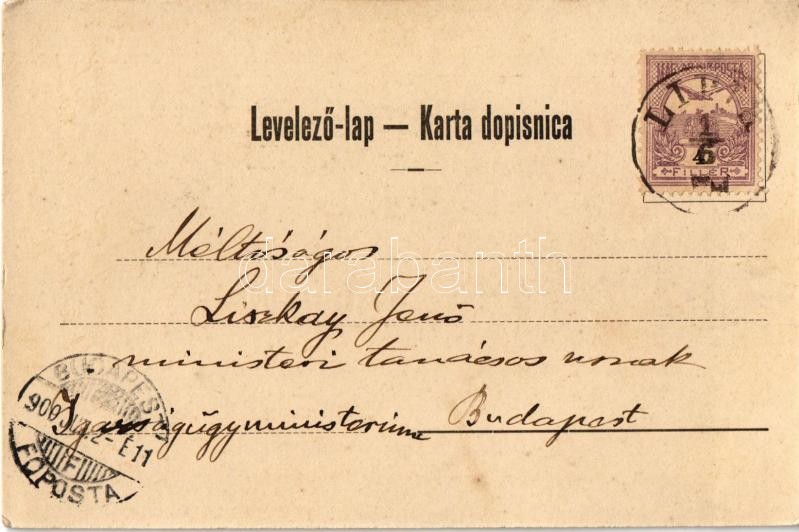 MAGYAR KIR. POSTA
LIPT
1
6
FILLÉR
Levelező-lap — Karta dopisnica
Méltóságos
darabanth
Liszkay Jenő
ministeri tanácsos urnak
Igazságügyministerium Budapest
BUDAPEST
900
E11
FŐPOSTA